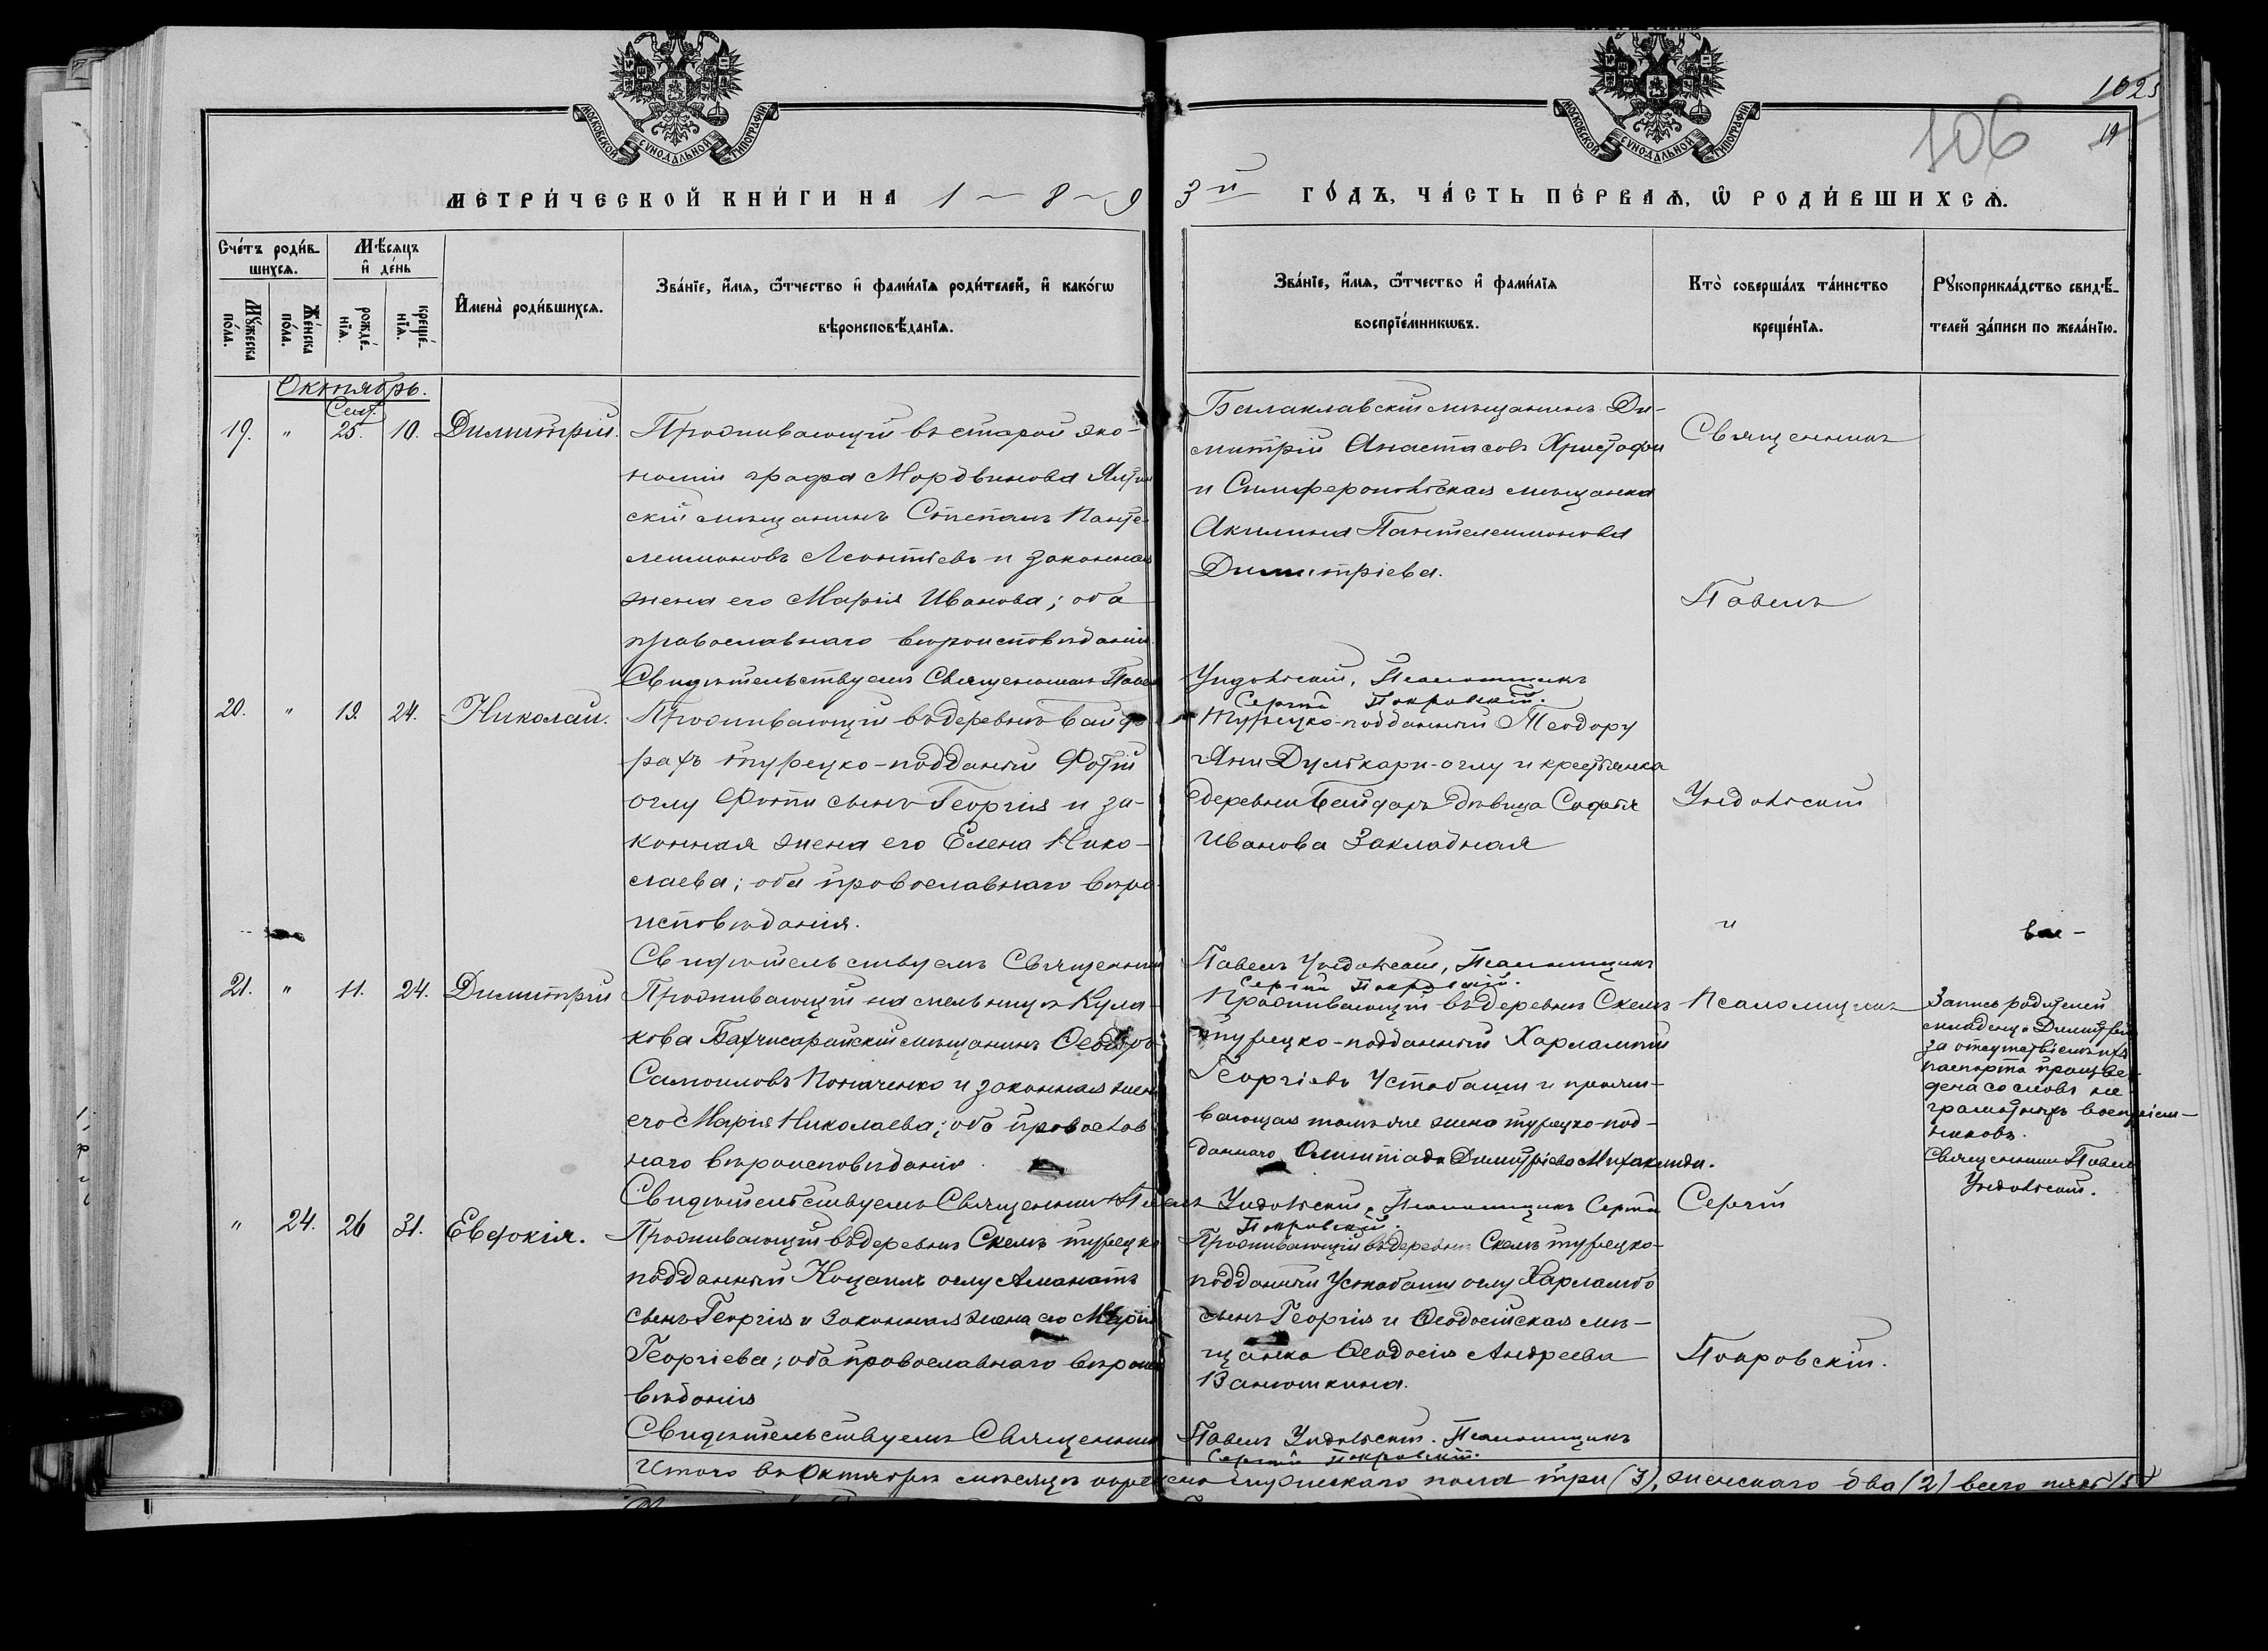 МОСКОВСКОЙ СУНОДАЛЬНОЙ ТИПОГРАФІИ
МОСКОВСКОЙ СУНОДАЛЬНОЙ ТИПОГРАФІИ
1025
106
19
МЕТРИ́ЧЕСКОЙ КНИ́ГИ НА 1 – 8 – 9
3й ГО́ДЪ, ЧА́СТЬ ПЕ́РВАѦ, Ѿ РОДИ́ВШИХСѦ.
Сче́тъ роди́в-
шихсѧ.
Мѣ́сѧцъ
и де́нь
Мꙋ́жеска
по́ла.
Же́нска
по́ла.
рожде́-
нїѧ.
креще́-
нїѧ.
Имена̀ роди́вшихсѧ.
Зва́нїе, и́мѧ, ѻ́тчество и фами́лїѧ роди́телей, и како́гѡ
вѣроисповѣ́данїѧ.
Зва́нїе, и́мѧ, ѻ́тчество и фами́лїѧ
воспрїе́мникѡвъ.
Кто̀ соверша́лъ та́инство
креще́нїѧ.
Рꙋкоприкла́дство свидѣ́-
телей за́писи по жела́нїю.
Октябрь.
Сент.
19. " 25. 10. Димитрій.
Проживающій въ старой эко-
номіи графа Мордвинова Ялтин
скій мѣщанинъ Степанъ Панте-
леимоновъ Леонтіевъ и законная
жена его Марія Иванова; оба
православнаго вѣроисповѣданія.
Свидѣтельствуемъ Священникъ Павелъ
Балаклавскій мѣщанинъ Ди-
митрій Анастасовъ Христофи
и Симферопольская мѣщанка
Акилина Пантелеимонова
Димитріева.
Ундольскій, Псаломщикъ
Сергій Покровскій.
Священникъ
Павелъ
20. " 19. 24. Николай.
Проживающій въ деревнѣ Байда
рахъ турецко-подданный Фотій
оглу Фоти сынъ Георгія и за-
конная жена его Елена Нико-
лаева; оба православнаго вѣро-
исповѣданія.
Свидѣтельствуемъ Священникъ
Турецко-подданный Теодору
Яни оглу и крестьянка
деревни Байдаръ дѣвица Софія
Иванова Закладная
Павелъ Ундольскій, Псаломщикъ
Сергій Покровскій.
Ундольскій
и
21. " 11. 24. Димитрій
Проживающій на мельницѣ Кула-
кова Бахчисарайскій мѣщанинъ Ѳеодоръ
Самоиловъ и законная жена
его Марія Николаева; оба православ
наго вѣроисповѣданія.
Свидѣтельствуемъ Священникъ Павелъ
Проживающій въ деревнѣ Скеляхъ
турецко-подданный Харлампій
Георгіевъ Устабаши и прожи-
вающая тамъ же жена турецко-под-
даннаго Олимпіада Димитріева
Ундольскій, Псаломщикъ Сергій
Покровскій.
Псаломщикъ
Сергій
Запись родителей
младенца Димитрія
за отсутствіемъ ихъ
паспорта произве-
дена со словъ не-
грамотныхъ воспріем-
никовъ.
Священникъ Павелъ
Ундольскій.
" 24. 26 31. Евдокія.
Проживающій въ деревнѣ турецко
подданный оглу Аманатъ
сынъ Георгія и законная жена его Марія
Георгіева; оба православнаго вѣроиспо
вѣданія
Свидѣтельствуемъ Священникъ
Проживающій въ деревнѣ турецко-
подданный Устабаши оглу Харламбо
сынъ Георгія и Ѳеодосійская мѣ-
щанка Ѳеодосія Андреева
Ванюшкина.
Павелъ Ундольскій. Псаломщикъ
Сергій Покровскій.
Покровскій.
Итого въ Октябрѣ мѣсяцѣ мужескаго пола три (3), женскаго два (2) всего пять (5)